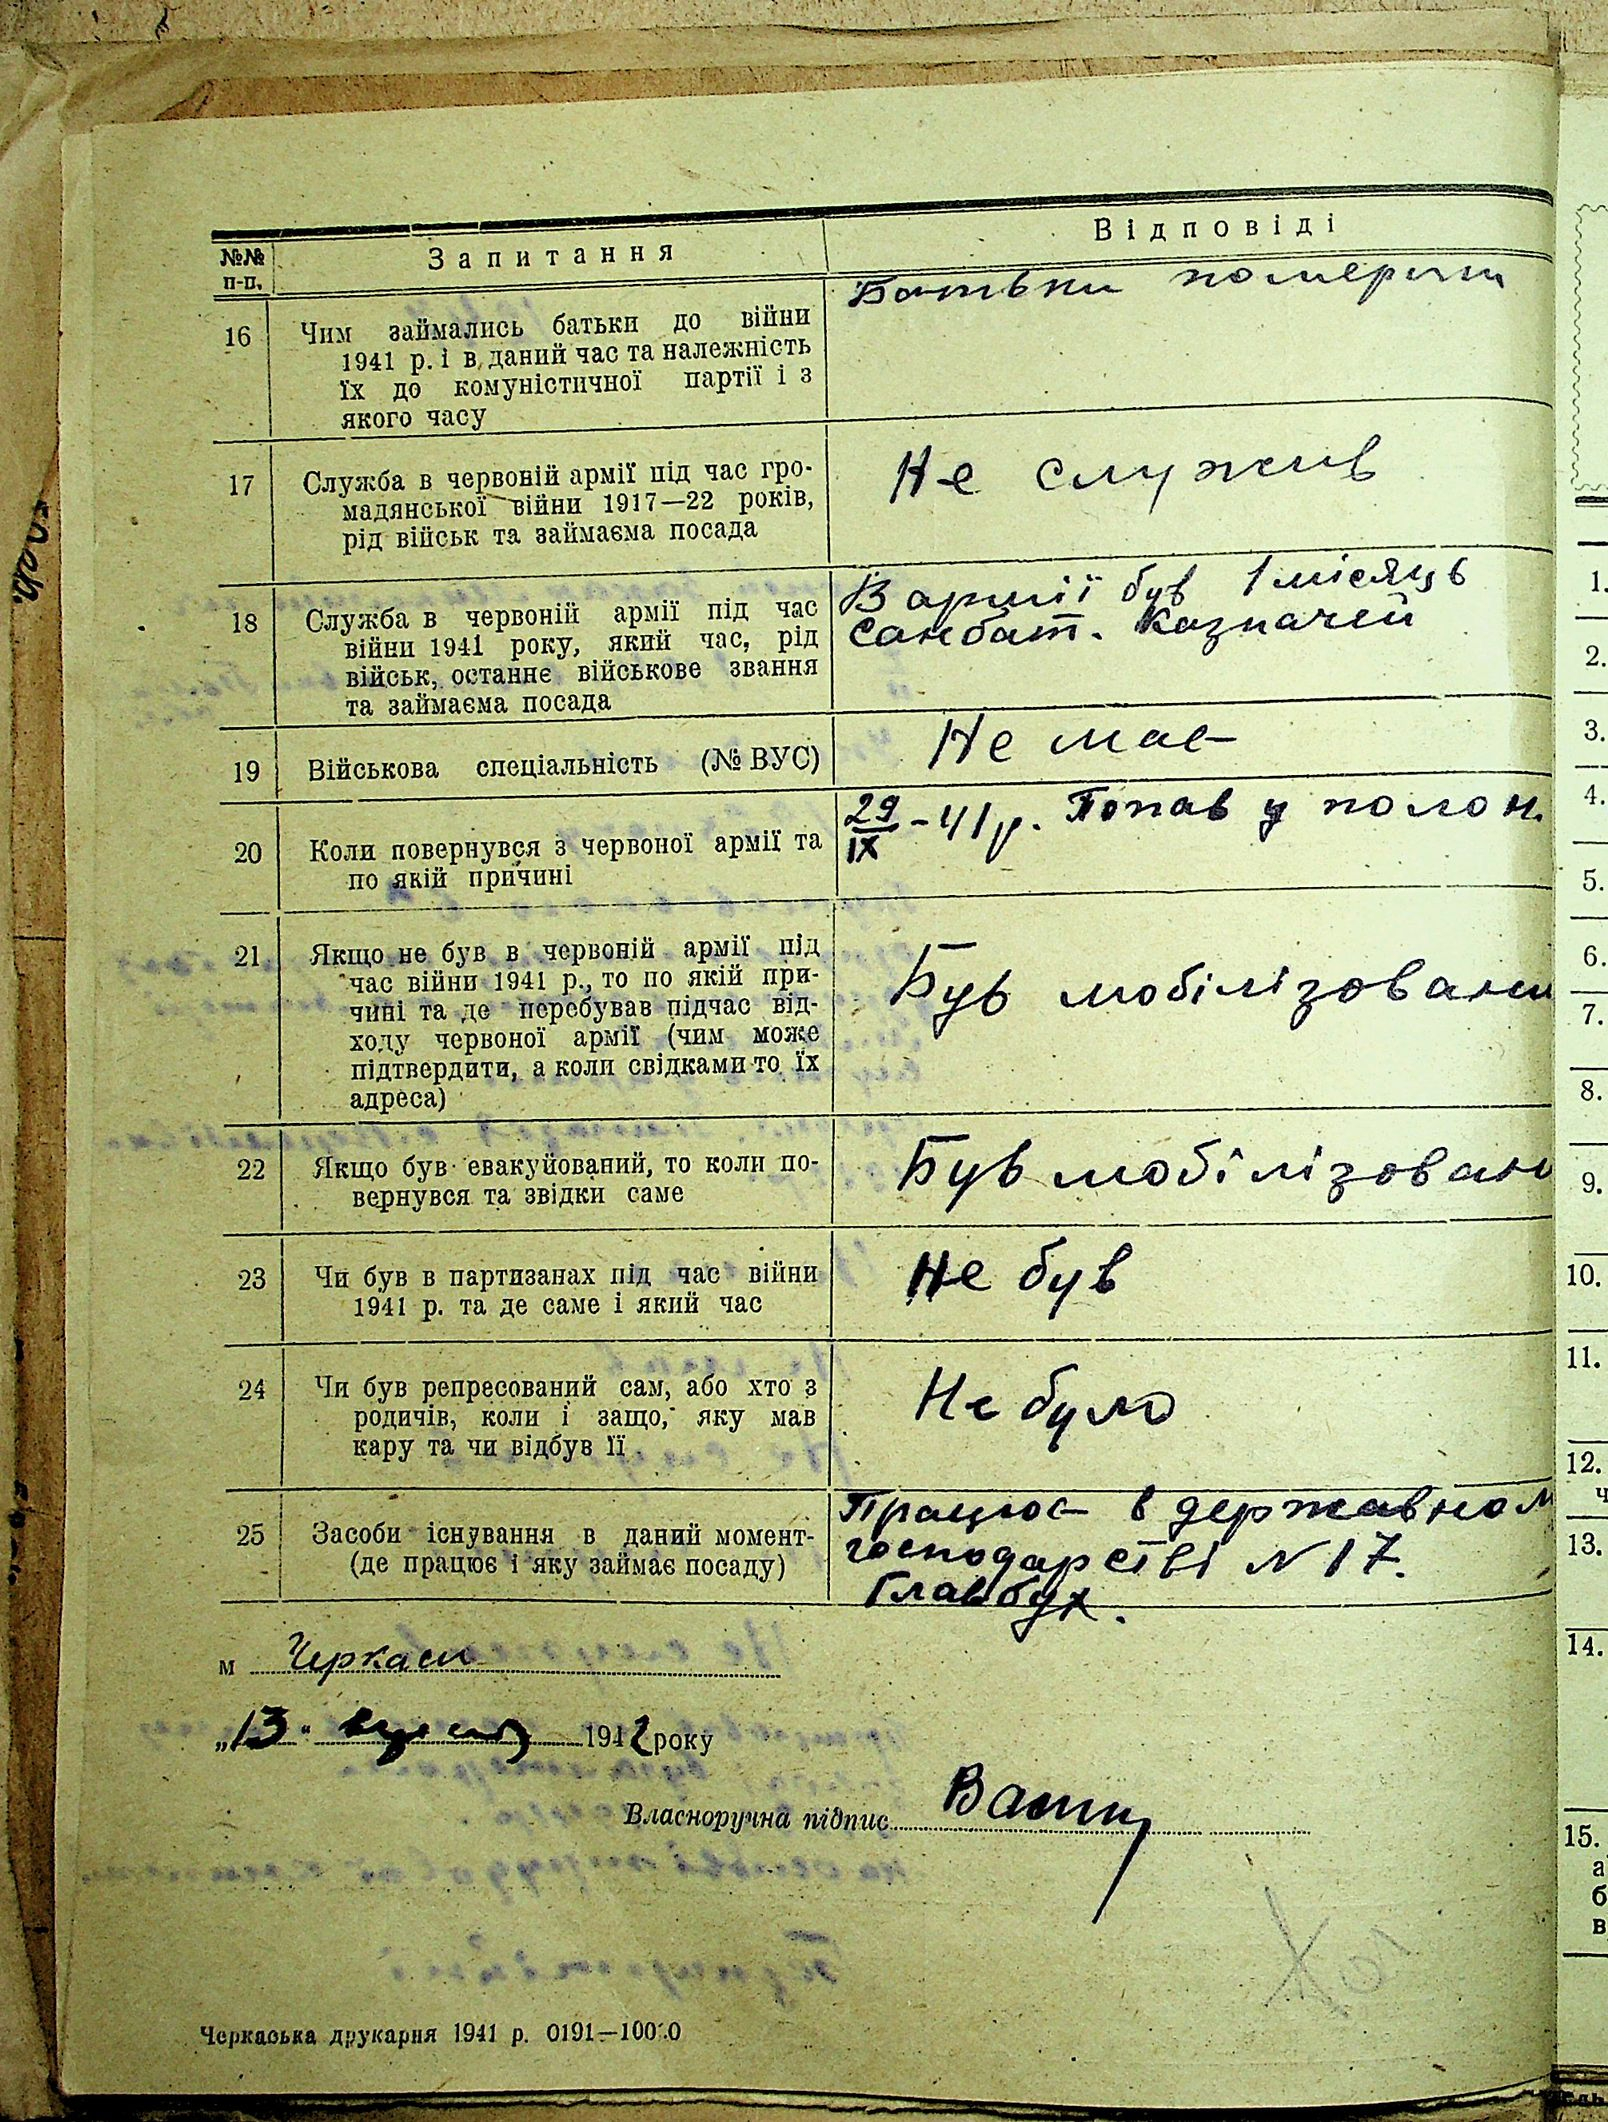 №№ п-п.
Запитання
Відповіді
16
Чим займались батьки до війни
1941 р. і в даний час та належність
їх до комуністичної партії і з
якого часу
Батьки померли
17
Служба в червоній армії під час гро-
мадянської війни 1917—22 років,
рід військ та займаєма посада
Не служив
18
Служба в червоній армії під час
війни 1941 року, який час, рід
військ, останнє військове звання
та займаєма посада
В армії був 1 місяць
санбат. Казначей
19
Військова спеціальність (№ ВУС)
Не має
20
Коли повернувся з червоної армії та
по якій причині
29/IX - 41 р. Попав у полон.
21
Якщо не був в червоній армії під
час війни 1941 р., то по якій при-
чині та де перебував підчас від-
ходу червоної армії (чим може
підтвердити, а коли свідками то їх
адреса)
Був мобілізовани
22
Якщо був евакуйований, то коли по-
вернувся та звідки саме
Був мобілізован
23
Чи був в партизанах під час війни
1941 р. та де саме і який час
Не був
24
Чи був репресований сам, або хто з
родичів, коли і защо, яку мав
кару та чи відбув її
Не було
25
Засоби існування в даний момент-
(де працює і яку займає посаду)
Працює в державном
господарстві N 17.
Главбух.
м Черкаси
„13" 1942 року
Власноручна підпис
Черкаська друкарня 1941 р. 0191—10000
1.
2.
3.
4.
5.
6.
7.
8.
9.
10.
11.
12.
ч
13.
14.
15.
а
б
в